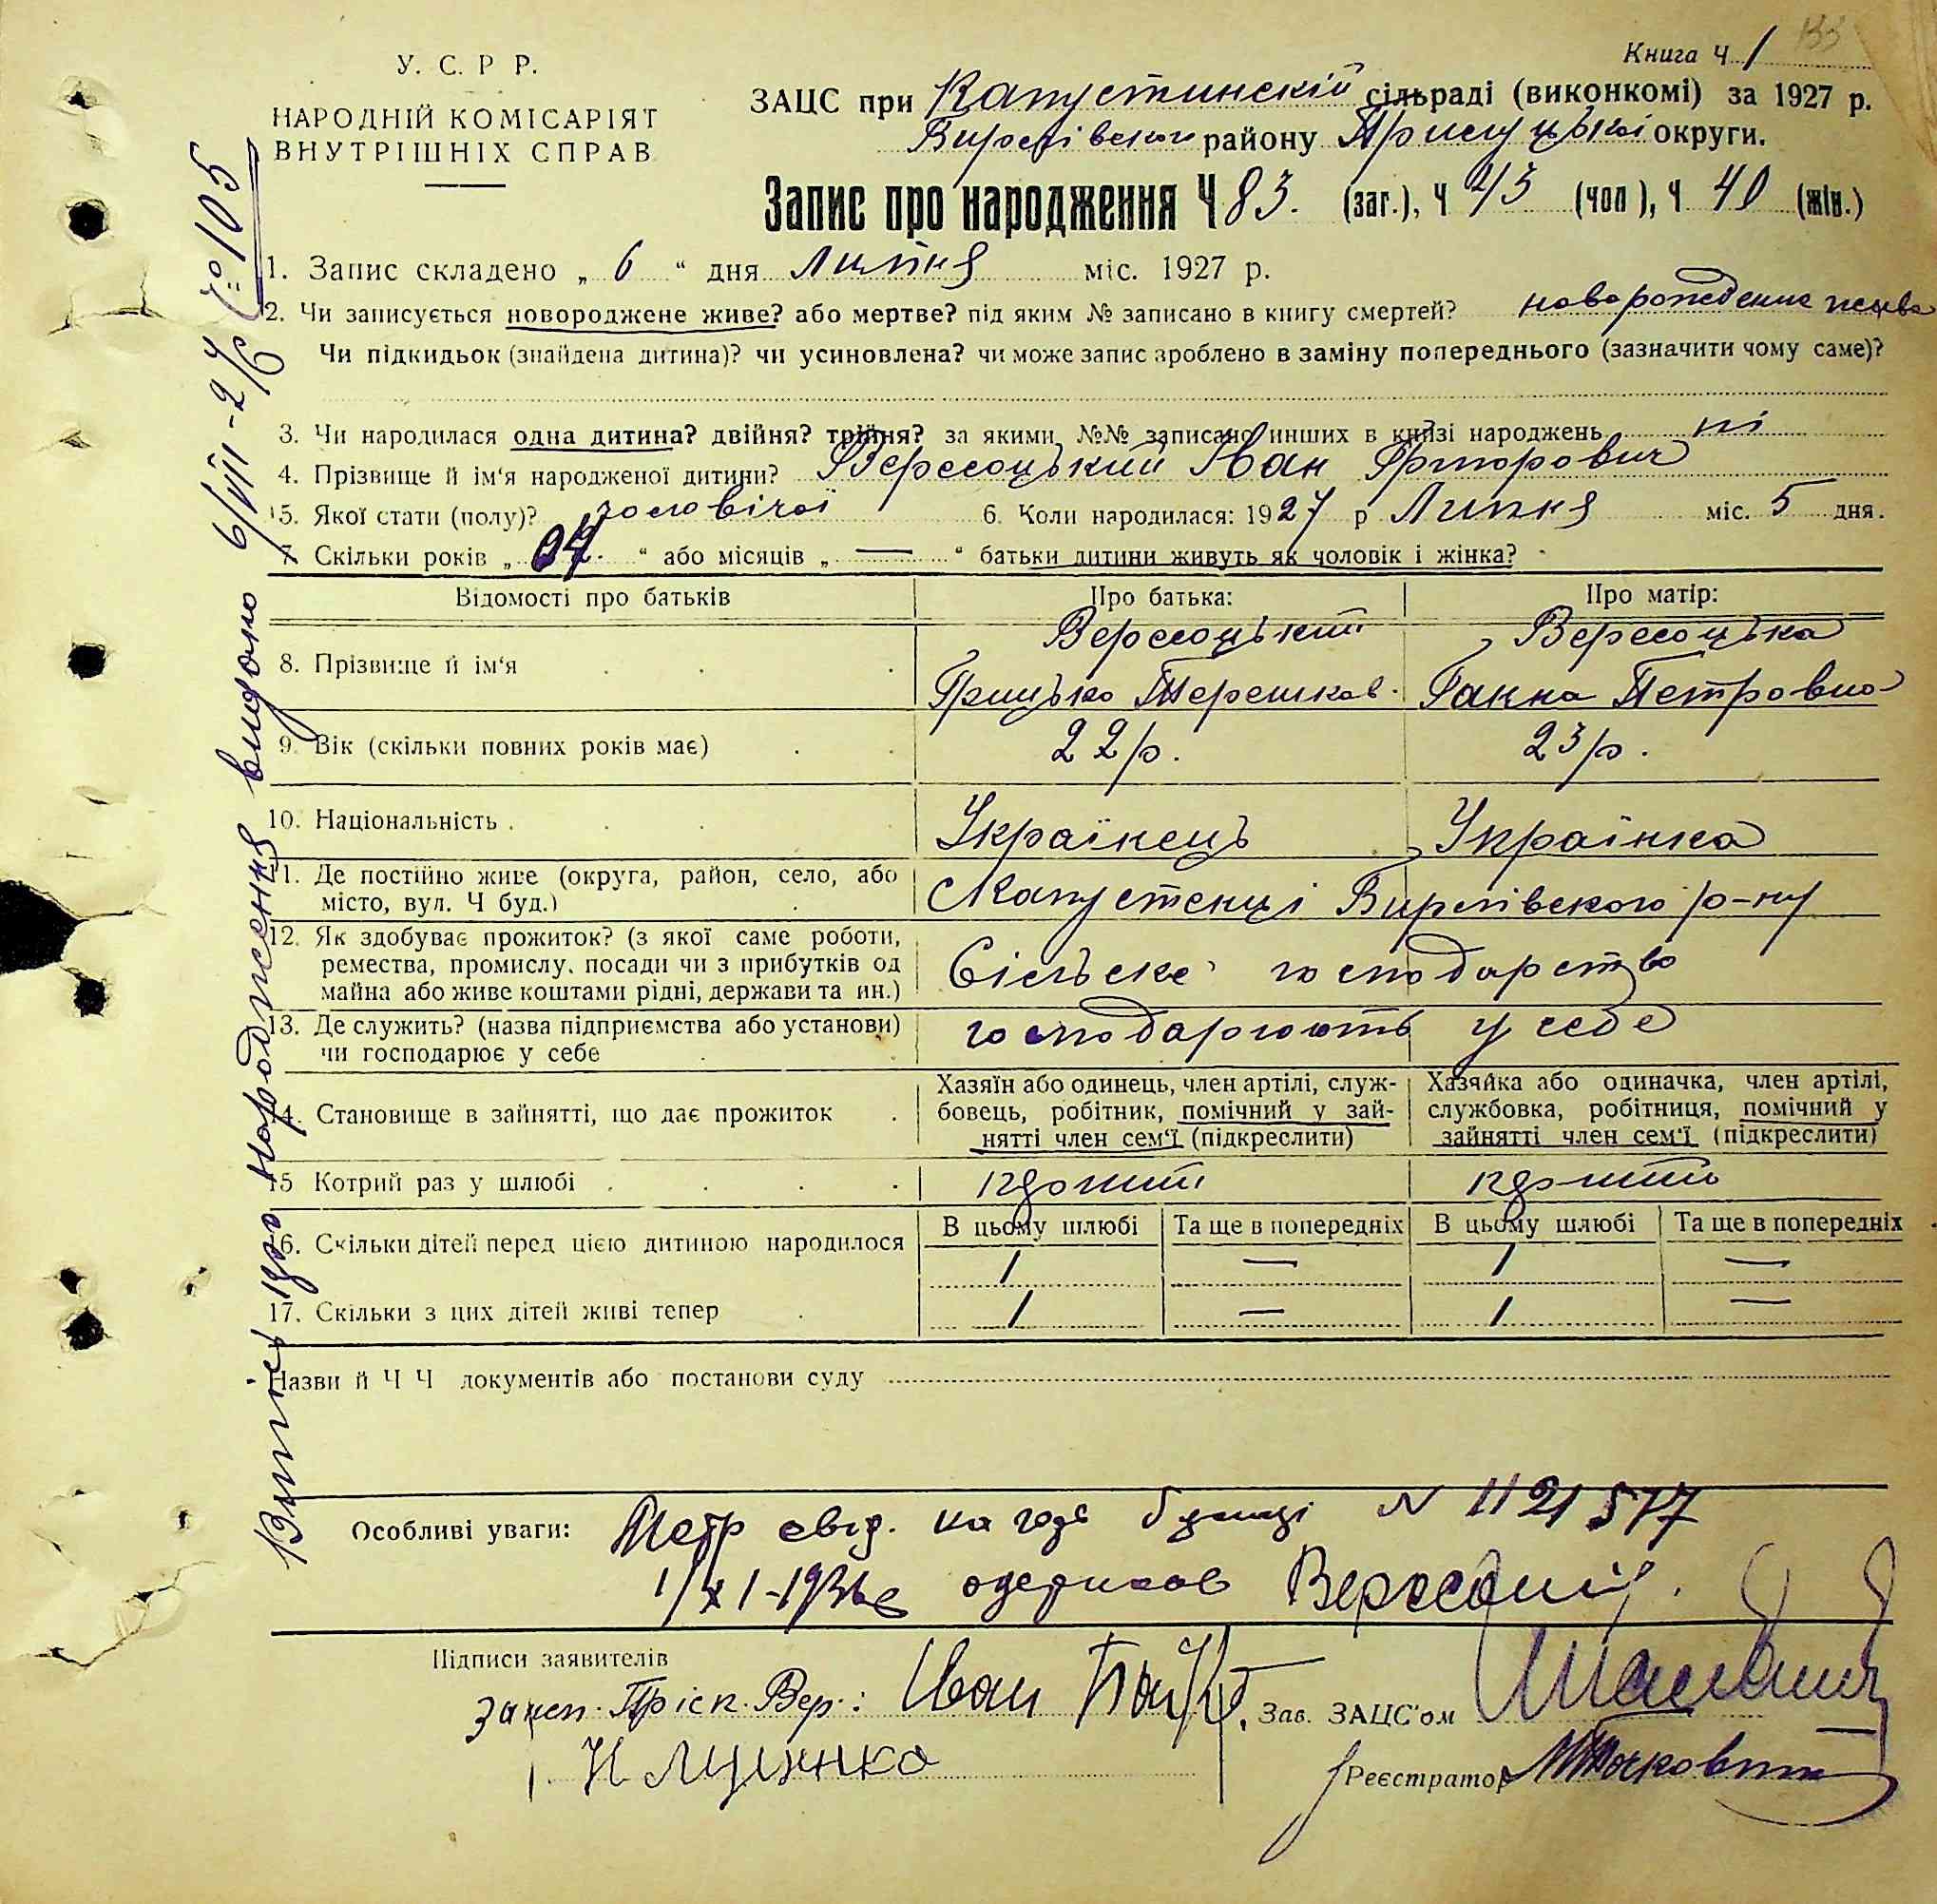 Книга Ч. 1
У. С. Р Р.
НАРОДНІЙ КОМІСАРІЯТ
ВНУТРІШНІХ СПРАВ
ЗАЦС при Капустинскій сільраді (виконкомі) за 1927 р.
району Прилуцької округи.
Запис про народження Ч 83. (заг.), Ч 43 (чол), Ч 40 (жін.)
1. Запис складено „ 6 “ дня Липня міс. 1927 р.
2. Чи записується новороджене живе? або мертве? під яким № записано в книгу смертей? новорождение
Чи підкидьок (знайдена дитина)? чи усиновлена? чи може запис зроблено в заміну попереднього (зазначити чому саме)?
3. Чи народилася одна дитина? двійня? трійня? за якими №№ записано инших в книзі народжень ні
4. Прізвище й ім'я народженої дитини? Вересоцький Іван Григорович
5. Якої стати (полу)? чоловічої 6. Коли народилася: 1927 р Липня міс. 5 дня.
7. Скільки років „ “ або місяців „ — “ батьки дитини живуть як чоловік і жінка?
Відомості про батьків Про батька: Про матір:
Вересоцький Вересоцька
8. Прізвище й ім'я
Грицько Терешков. Ганна Петровна
9. Вік (скільки повних років має) 22 р. 23 р.
10. Національність . Українець Українка
11. Де постійно живе (округа, район, село, або
місто, вул. Ч буд.) Капустенці р-ну
12. Як здобуває прожиток? (з якої саме роботи,
ремества, промислу, посади чи з прибутків од
майна або живе коштами рідні, держави та ин.) Сільске господарство
13. Де служить? (назва підприємства або установи)
чи господарює у себе господарюють у себе
14. Становище в зайнятті, що дає прожиток
Хазяїн або одинець, член артілі, служ-
бовець, робітник, помічний у зай-
нятті член сем'ї (підкреслити)
Хазяйка або одиначка, член артілі,
службовка, робітниця, помічний у
зайнятті член сем'ї (підкреслити)
15 Котрий раз у шлюбі
В цьому шлюбі Та ще в попередніх В цьому шлюбі Та ще в попередніх
16. Скільки дітей перед цією дитиною народилося 1 — 1 —
17. Скільки з цих дітей живі тепер 1 — 1 —
Назви й Ч Ч документів або постанови суду
Особливі уваги: Метр свід. N 1121517
одержав
Підписи заявителів
Іван Зав. ЗАЦС'ом
Реєстратор
Витяг про народження видано 6/VII-27 № 105